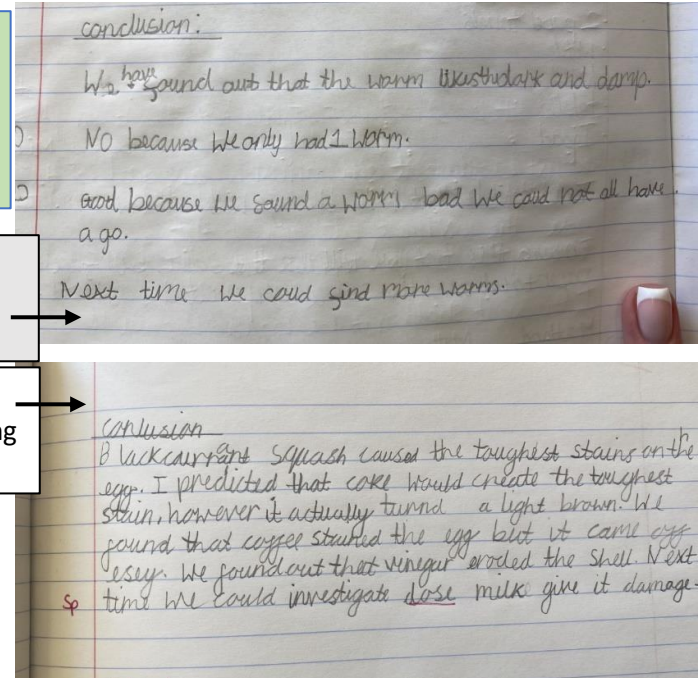 conclusion:
We have found out that the worm likes the dark and damp.
No because we only had 1 worm.
Good because we found a worm bad we coud not all have
a go.
Next time we coud find more worms.
ng
conlusion
Blackcurrant squash caused the toughest stains on the
egg. I predicted that coke would create the toughest
stain, however it actually turnd a light brown. We
found that coffee stained the egg but it came off
esey. We found out that vinegar eroded the shell. Next
sp time we could investigate dose milk give it damage.